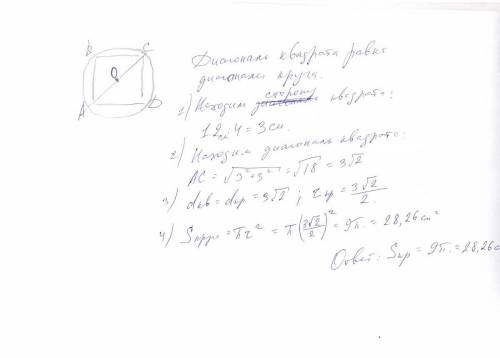 B C
O
A D
Диагональ квадрата равна
диагонали круга.
1) Находим сторону квадрата:
12см : 4 = 3 см.
2) Находим диагональ квадрата:
AC = √3²+3² = √18 = 3√2
3) dкв = dкр = 3√2 ; rкр = 3√2/2.
4) Sкруга = πr² = π(3√2/2)² = 9π. = 28,26 см²
Ответ: Sкр = 9π. = 28,26 с